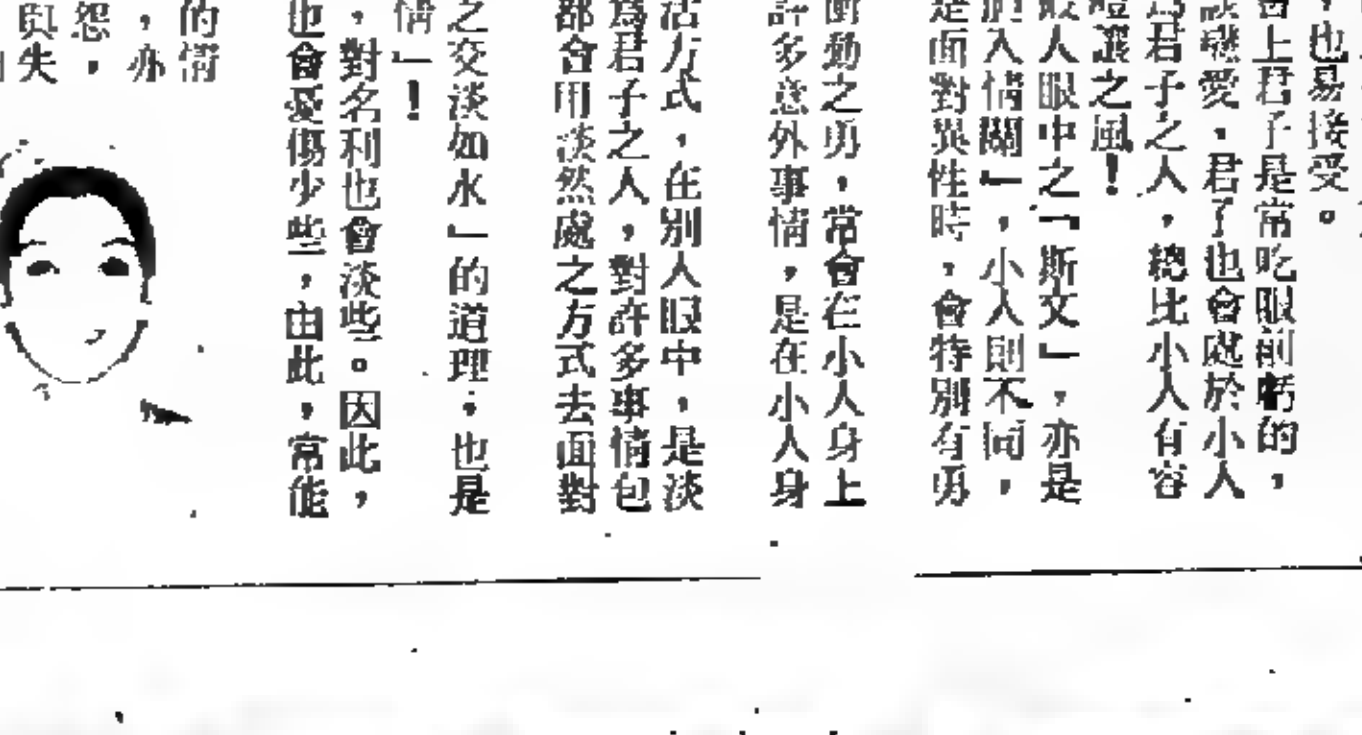 ，也易接受。
會上君子是常吃眼前虧的，
談戀愛，君子也會處於小人
為君子之人，總比小人有容
禮讓之風！
般人眼中之「斯文」，亦是
入情關」，小人則不同，
是面對異性時，會特別有勇
衝動之勇，常會在小人身上
許多意外事情，是在小人身
活方式，在別人眼中，是淡
為君子之人，對許多事情包
都會用淡然處之方式去面對
之交淡如水」的道理，也是
情」！
，對名利也會淡些。因此，
也會憂傷少些，由此，常能
的情
，亦
怨，
與失